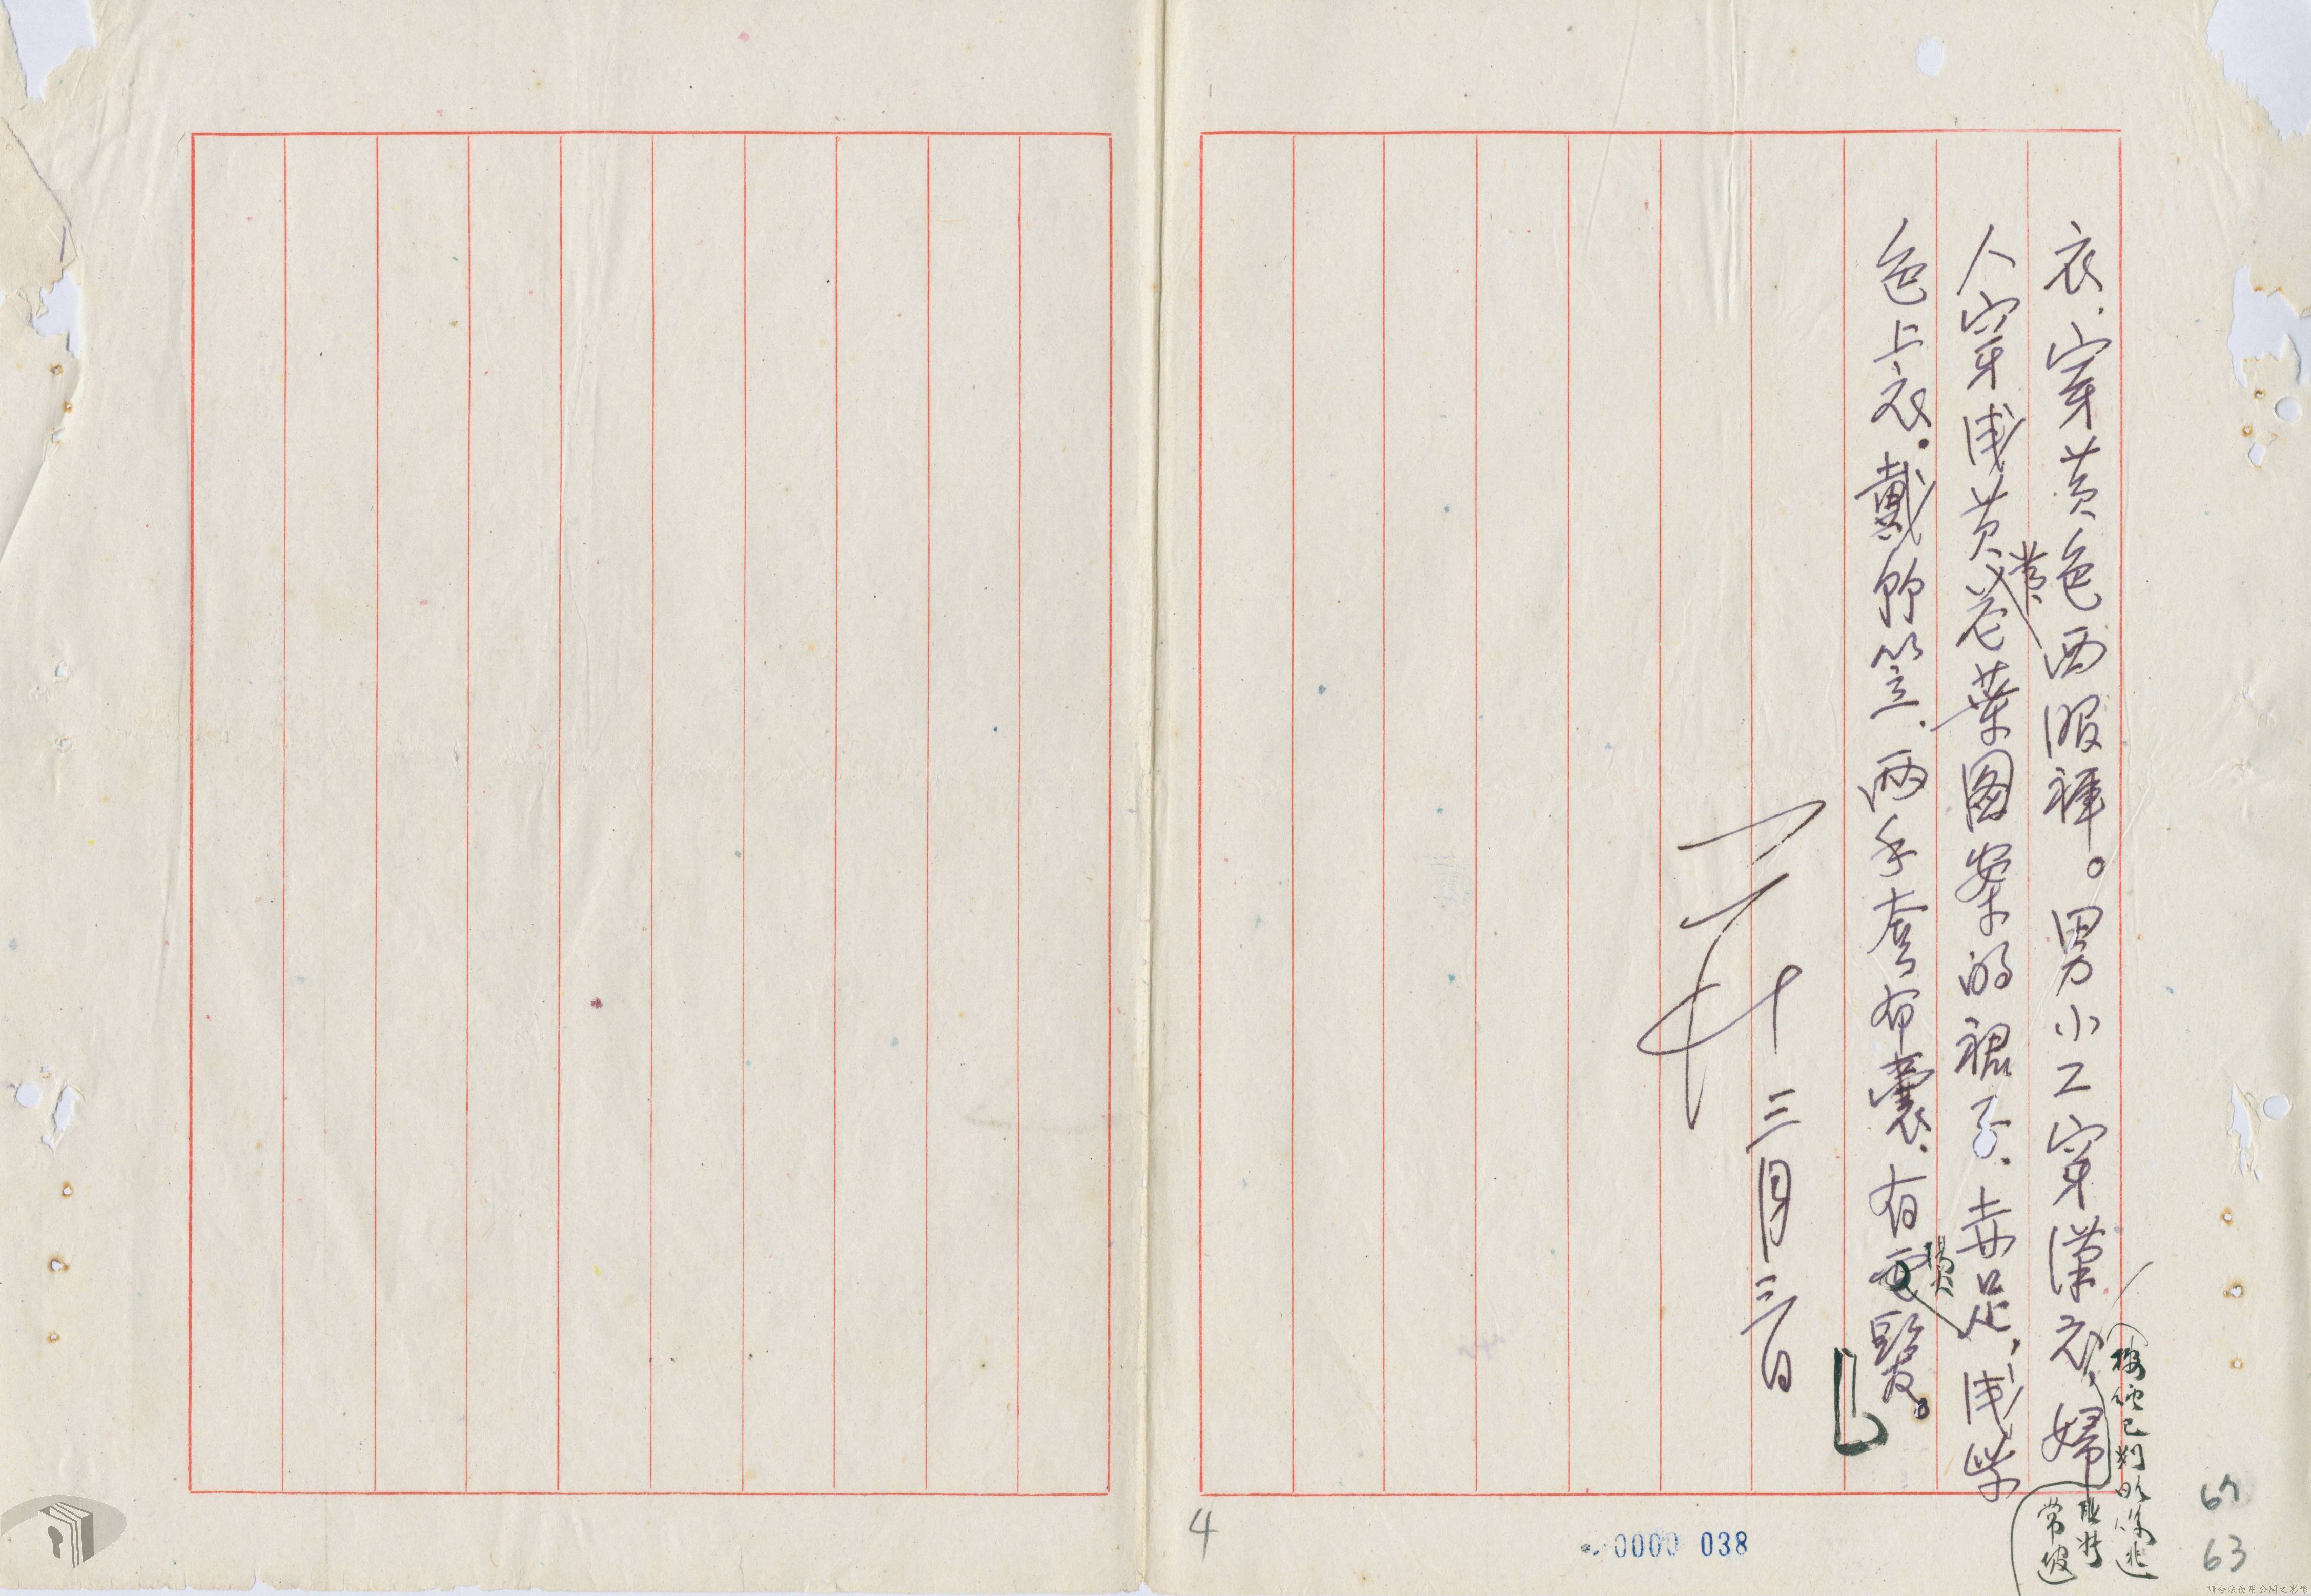 衣．穿黃色西服褲。男小工穿漢衣，婦
人穿淺黃花葉圖案的裙子．赤足，淺紫
色上衣．戴斗笠．兩手套布囊．有 髮。
黃
三月三日
(按 已判明係逃
4
0000 038
67
63
請合法使用公開之影像